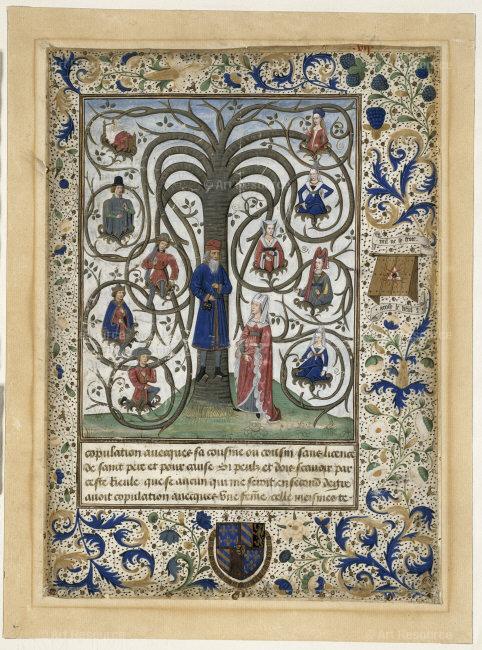 copulation avecques sa cousine ou cousin sans licence
de saint pere et pour cause Et peulz et dois scavoir par
ceste Rieule que se aucun qui me seroit en second degre
avoit copulation avecques une femme celle mesmes te
© Art Resource
© Art Resource
© Art Resource